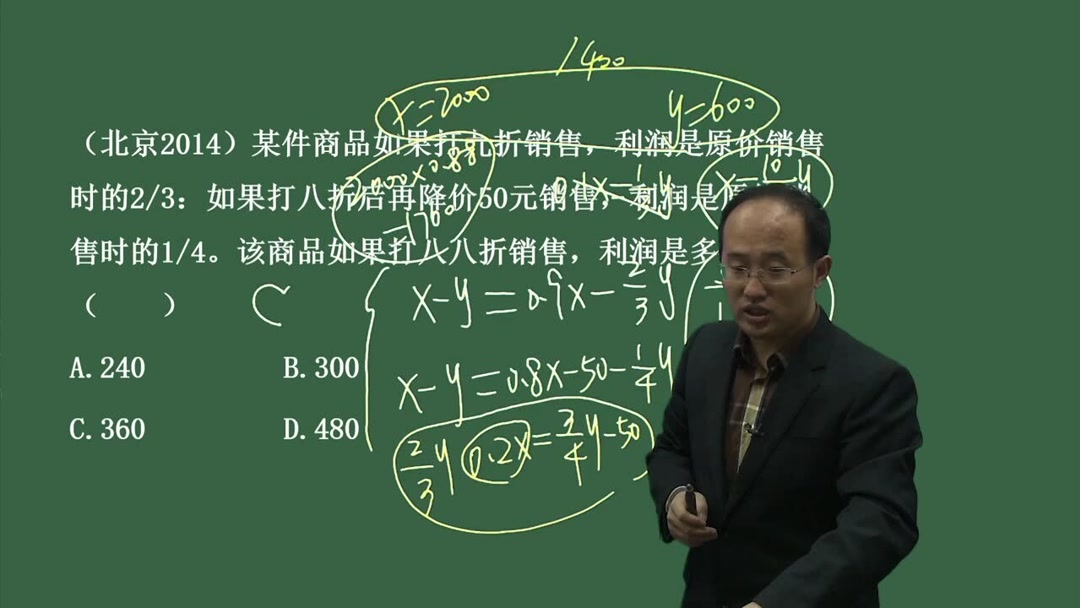 1400
x=2000 y=600
（北京2014）某件商品如果打九折销售，利润是原价销售
2000×0.88
=1760
0.1x=1/3y
x=10/
y
时的2/3：如果打八折后再降价50元销售，利润是原
售时的1/4。该商品如果打八八折销售，利润是多
（ ） C
x-y=0.9x-2/3y
A.240 B.300
x-y=0.8x-50-1/4y
C.360 D.480
2/3y 0.2x=3/4y-50